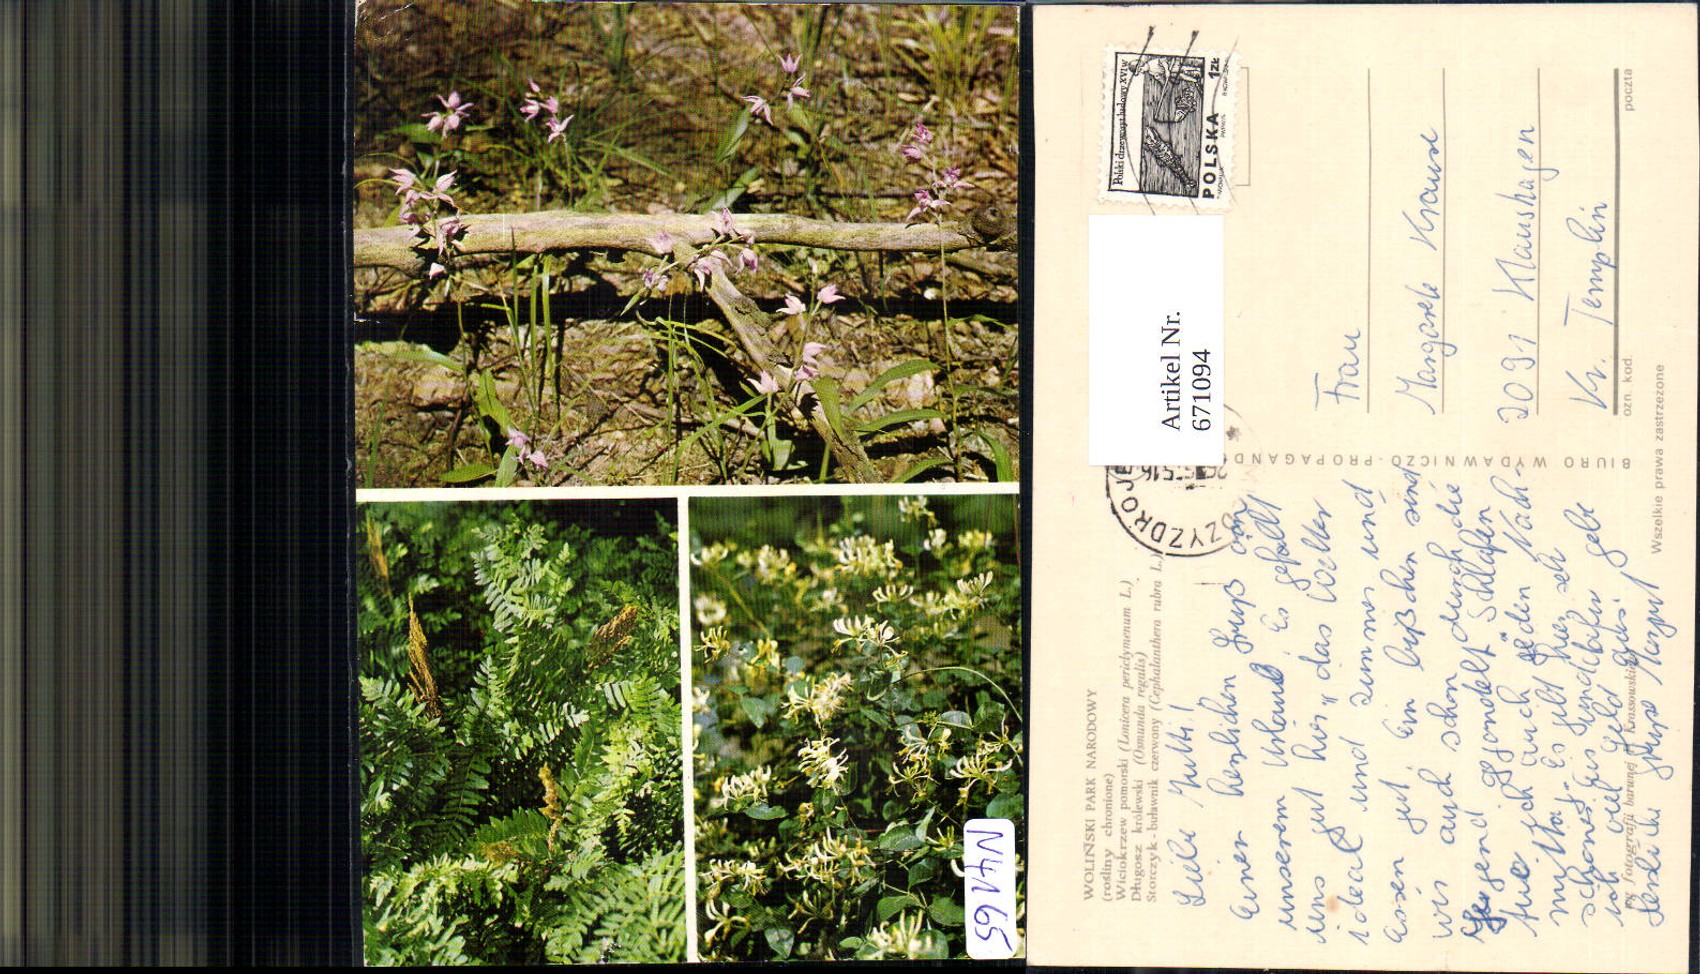 WOLIŃSKI PARK NARODOWY
(rośliny chronione)
Wiciokrzew pomorski (Lonicera periclymenum L.)
Długosz królewski (Osmunda regalis)
Storczyk - buławnik czerwony (Cephalanthera rubra L.)
Polski drzeworyt ludowy XVI w
1 zł
POLSKA
Artikel Nr.
671094
ZYZDROJ
BIURO WYDAWNICZO-PROPAGAND
Liebe Mutti!
Einen herzlichen Gruß von
unserem Urlaub. Es gefällt
uns gut hier, das Wetter
ideal und Zimmer und
Essen gut. Ein bißchen sind
wir auch schon durch die
Gegend gegondelt. Schlafen
tue ich auch jeden Nach-
mittag. Es gibt hier sehr
schönes
ich viel Geld aus.
Grüße
Frau
Margarete Krause
2091 Klaushagen
Kr. Templin
ozn. kod.
poczta
Fotografii barwnej Krassowski
Wszelkie prawa zastrzeżone
N4V65